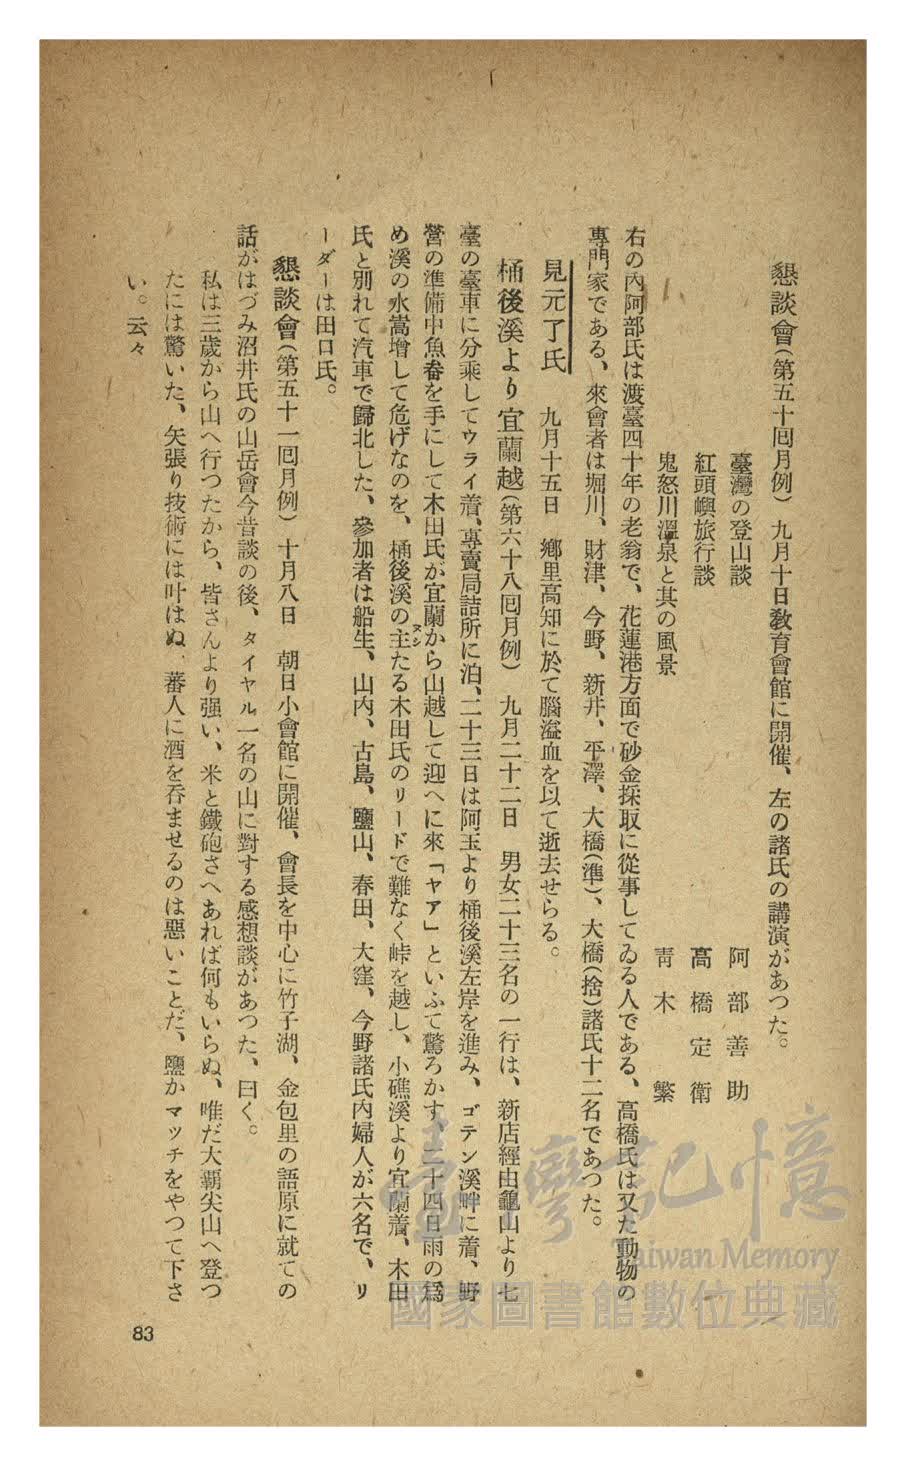 懇談會(第五十回月例) 九月十日敎育會館に開催、左の諸氏の講演があつた。
臺灣の登山談 阿部善助
紅頭嶼旅行談 高橋定衛
鬼怒川溫泉と其の風景 靑木繁
右の內阿部氏は渡臺四十年の老翁で、花蓮港方面で砂金採取に從事してゐる人である、高橋氏は又た動物の
專門家である、來會者は堀川、財津、今野、新井、平澤、大橋(準)、大橋(捨)諸氏十二名であつた。
見元了氏 九月十五日 鄕里高知に於て腦溢血を以て逝去せらる。
桶後溪より宜蘭越(第六十八回月例) 九月二十二日 男女二十三名の一行は、新店經由龜山より七
臺の臺車に分乘してウライ着、專賣局詰所に泊、二十三日は阿玉より桶後溪左岸を進み、ゴテン溪畔に着、野
營の準備中魚畚を手にして木田氏が宜蘭から山越して迎へに來「ヤア」といふて驚ろかす、二十四日雨の爲
め溪の水嵩增して危げなのを、桶後溪の主たる木田氏のリードで難なく峠を越し、小礁溪より宜蘭着、木田
ヌシ
氏と別れて汽車で歸北した、參加者は船生、山內、古島、鹽山、春田、大窪、今野諸氏內婦人が六名で、リ
ーダーは田口氏。
懇談會(第五十一回月例) 十月八日 朝日小會館に開催、會長を中心に竹子湖、金包里の語原に就ての
話がはづみ沼井氏の山岳會今昔談の後、タイヤル一名の山に對する感想談があつた、曰く。
私は三歲から山へ行つたから、皆さんより强い、米と鐵砲さへあれば何もいらぬ、唯だ大霸尖山へ登つ
たには驚いた、矢張り技術には叶はぬ、蕃人に酒を呑ませるのは惡いことだ、鹽かマッチをやつて下さ
い。云々
83
臺灣記憶
Taiwan Memory
國家圖書館數位典藏